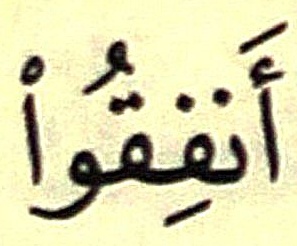 أَنفِقُوا۟